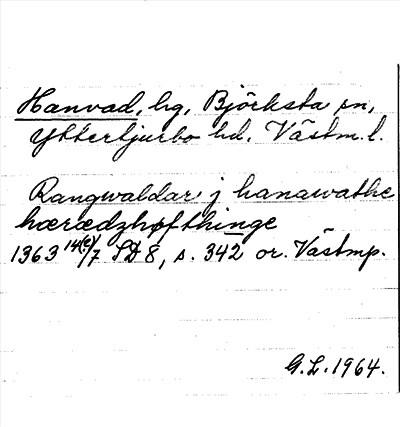 Hanvad, hg, Björksta sn,
Yttertjurbo hd. Västm.l.
Rangwaldar j hanawathe
hærædzhøfthinge
1363 14(?)/7 SD 8, s. 342 or. Västmp.
G.L. 1964.